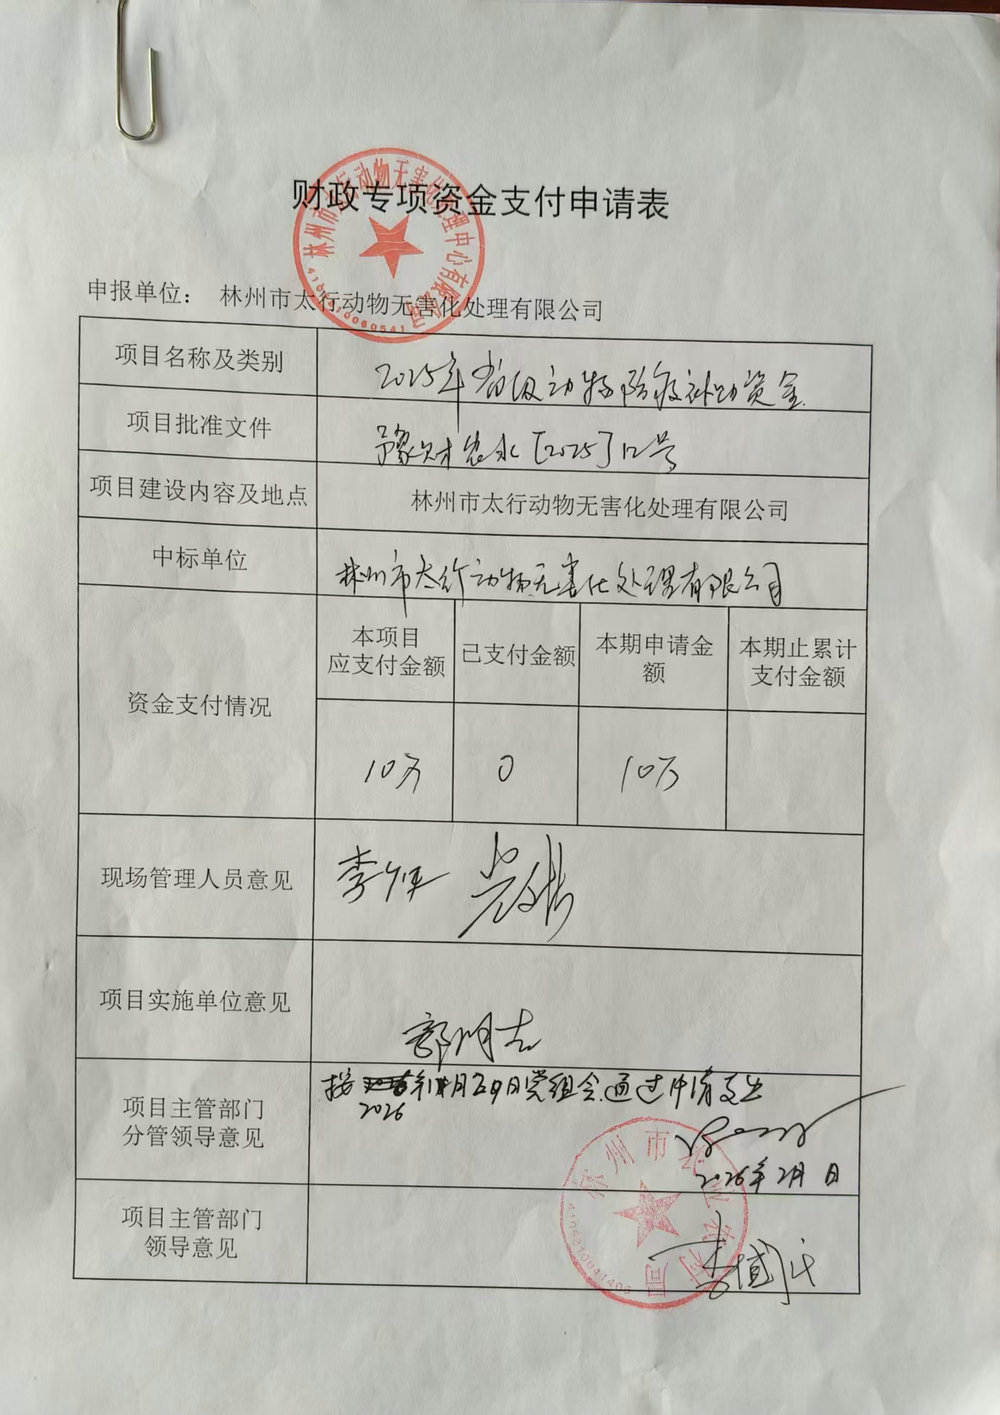 财政专项资金支付申请表
林州市太行动物无害化处理中心有限公司
申报单位： 林州市太行动物无害化处理有限公司
项目名称及类别 2025年省级动物防疫补助资金
项目批准文件 豫财农水[2025]12号
项目建设内容及地点 林州市太行动物无害化处理有限公司
中标单位 林州市太行动物无害化处理有限公司
资金支付情况
本项目
应支付金额
已支付金额
本期申请金
额
本期止累计
支付金额
10万 0 10万
现场管理人员意见 李
项目实施单位意见 郭明志
项目主管部门
分管领导意见
按 年 月 日党组会通过申请支出
2026
2026年2月 日
林州市农业农村局
4105210041403
项目主管部门
领导意见
李